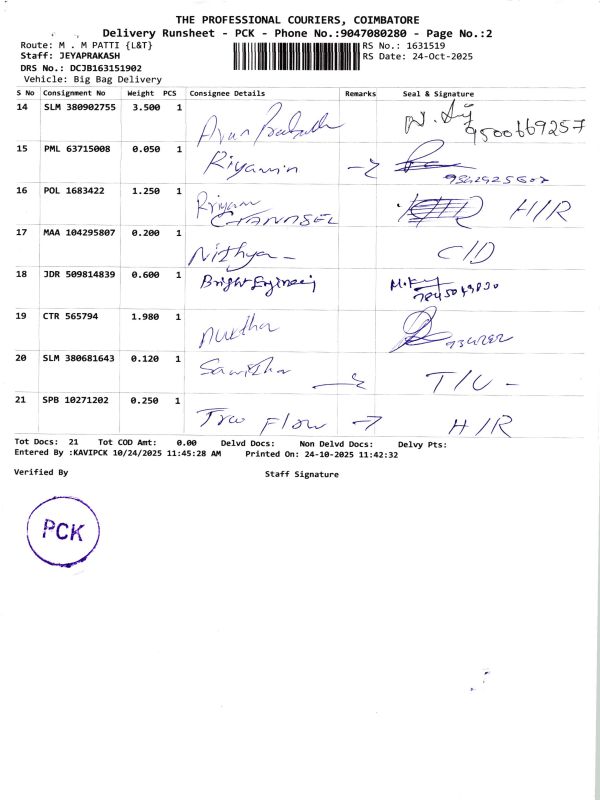 THE PROFESSIONAL COURIERS, COIMBATORE
Delivery Runsheet - PCK - Phone No.:9047080280 - Page No.:2
Route: M . M PATTI {L&T} RS No.: 1631519
Staff: JEYAPRAKASH RS Date: 24-Oct-2025
DRS No.: DCJB163151902
Vehicle: Big Bag Delivery
S No Consignment No Weight PCS Consignee Details Remarks Seal & Signature
14 SLM 380902755 3.500 1
9500669257
15 PML 63715008 0.050 1 Riyamin
16 POL 1683422 1.250 1 Riyam H/R
17 MAA 104295807 0.200 1 Nithya C/D
18 JDR 509814839 0.600 1 Bright Engineering
19 CTR 565794 1.980 1
20 SLM 380681643 0.120 1 T/U -
21 SPB 10271202 0.250 1 True Flow → H/R
Tot Docs: 21 Tot COD Amt: 0.00 Delvd Docs: Non Delvd Docs: Delvy Pts:
Entered By :KAVIPCK 10/24/2025 11:45:28 AM Printed On: 24-10-2025 11:42:32
Verified By Staff Signature
PCK